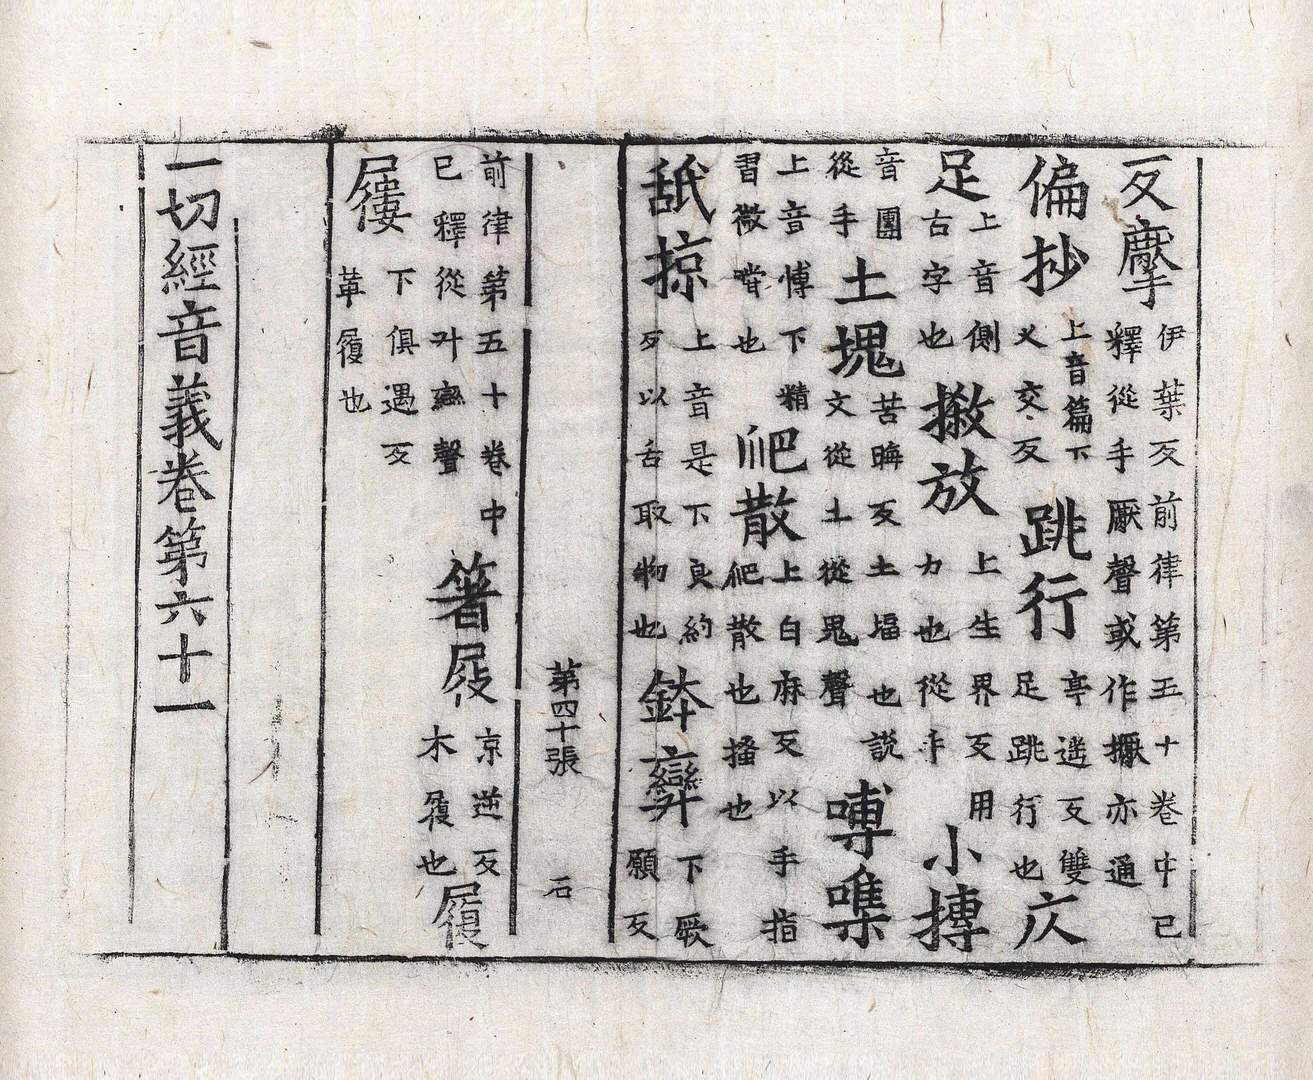 反擪伊葉反前律第五十卷中已釋從手厭聲或作擫亦通
偏抄上音篇下乂交反跳行亭遥反雙足跳行也仄
足上音側古字也撽放上生界反用力也從手小摶
音團從手土塊苦晦反土堛也說文從土從鬼聲嚩噍
上音愽下精習微嚼也爬散上白麻反以手指爬散也搔也
舐掠上音是下良約反以舌取物也鉢㝈下厥願反
第四十張 石
前律第五十卷中已釋從廾䜌聲箸屐京逆反木履也履
屨下俱遇反革履也
一切經音義卷第六十一